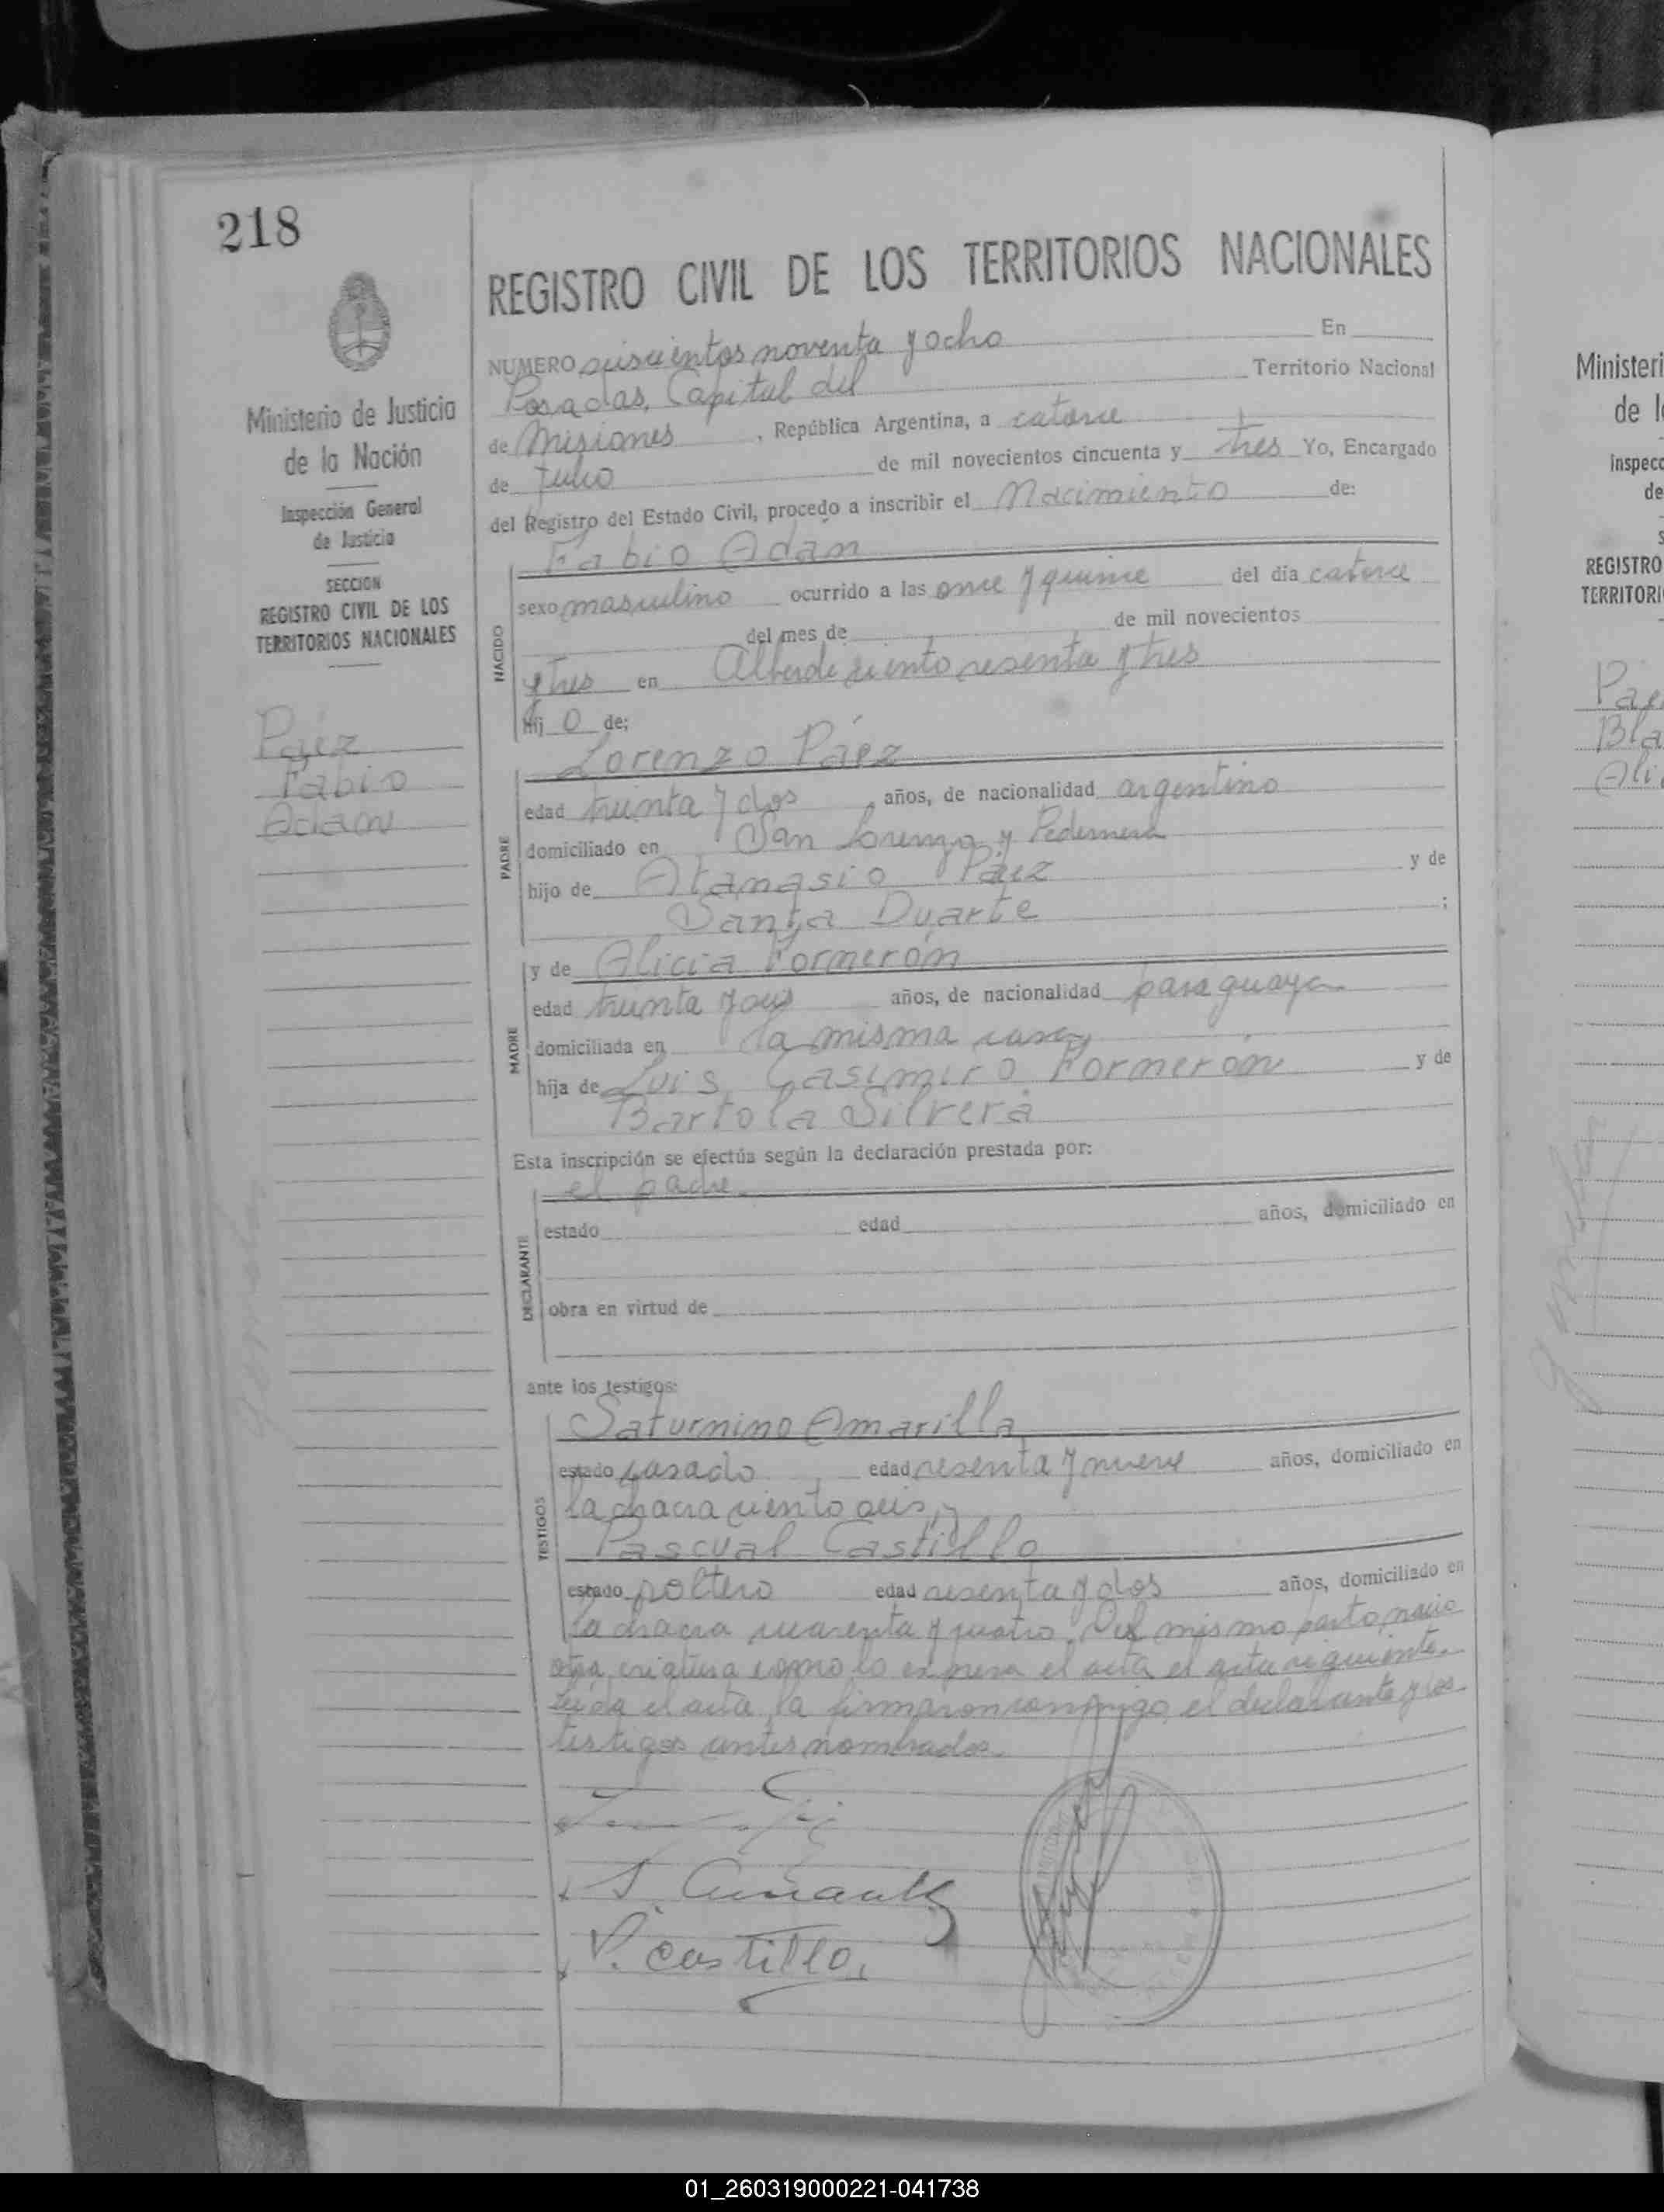 218
REGISTRO CIVIL DE LOS TERRITORIOS NACIONALES
NUMERO seiscientos noventa y ocho En
Posadas, Capital del Territorio Nacional
de Misiones, República Argentina, a catorce
de Julio de mil novecientos cincuenta y tres Yo, Encargado
del Registro del Estado Civil, procedo a inscribir el Nacimiento de:
Fabio Adan
NACIDO
sexo masculino ocurrido a las once y quince del día catorce
del mes de de mil novecientos
y tres en Alberdi ciento sesenta y tres
hij o de;
Lorenzo Páez
PADRE
edad treinta y dos, años, de nacionalidad argentino
domiciliado en San Lorenzo y Pedernera
hijo de Atanasio Páez y de
Santa Duarte ;
MADRE
y de Alicia Formerón
edad treinta y seis años, de nacionalidad paraguaya
domiciliada en la misma casa,
hija de Luis Casimiro Formerón y de
Bartola Silvera
Esta inscripción se efectúa según la declaración prestada por:
el padre
DECLARANTE
estado edad años, domiciliado en
obra en virtud de
ante los testigos:
Saturnino Amarilla
TESTIGOS
estado casado edad sesenta y nueve años, domiciliado en
la chacra ciento seis, y
Pascual Castillo
estado soltero edad sesenta y dos años, domiciliado en
la chacra cuarenta y cuatro. Del mismo parto, nació
otra criatura como lo expresa el acta el acta siguiente.
Leída el acta, la firmaron conmigo, el declarante y los
testigos antes nombrados.
S. Amarilla
P. Castillo,
Ministerio de Justicia
de la Nación
Inspección General
de Justicia
SECCION
REGISTRO CIVIL DE LOS
TERRITORIOS NACIONALES
Páez
Fabio
Adan
Ministeri
de l
Inspecc
de
S
REGISTRO
TERRITORI
Pae
Bla
Ali
01_260319000221-041738